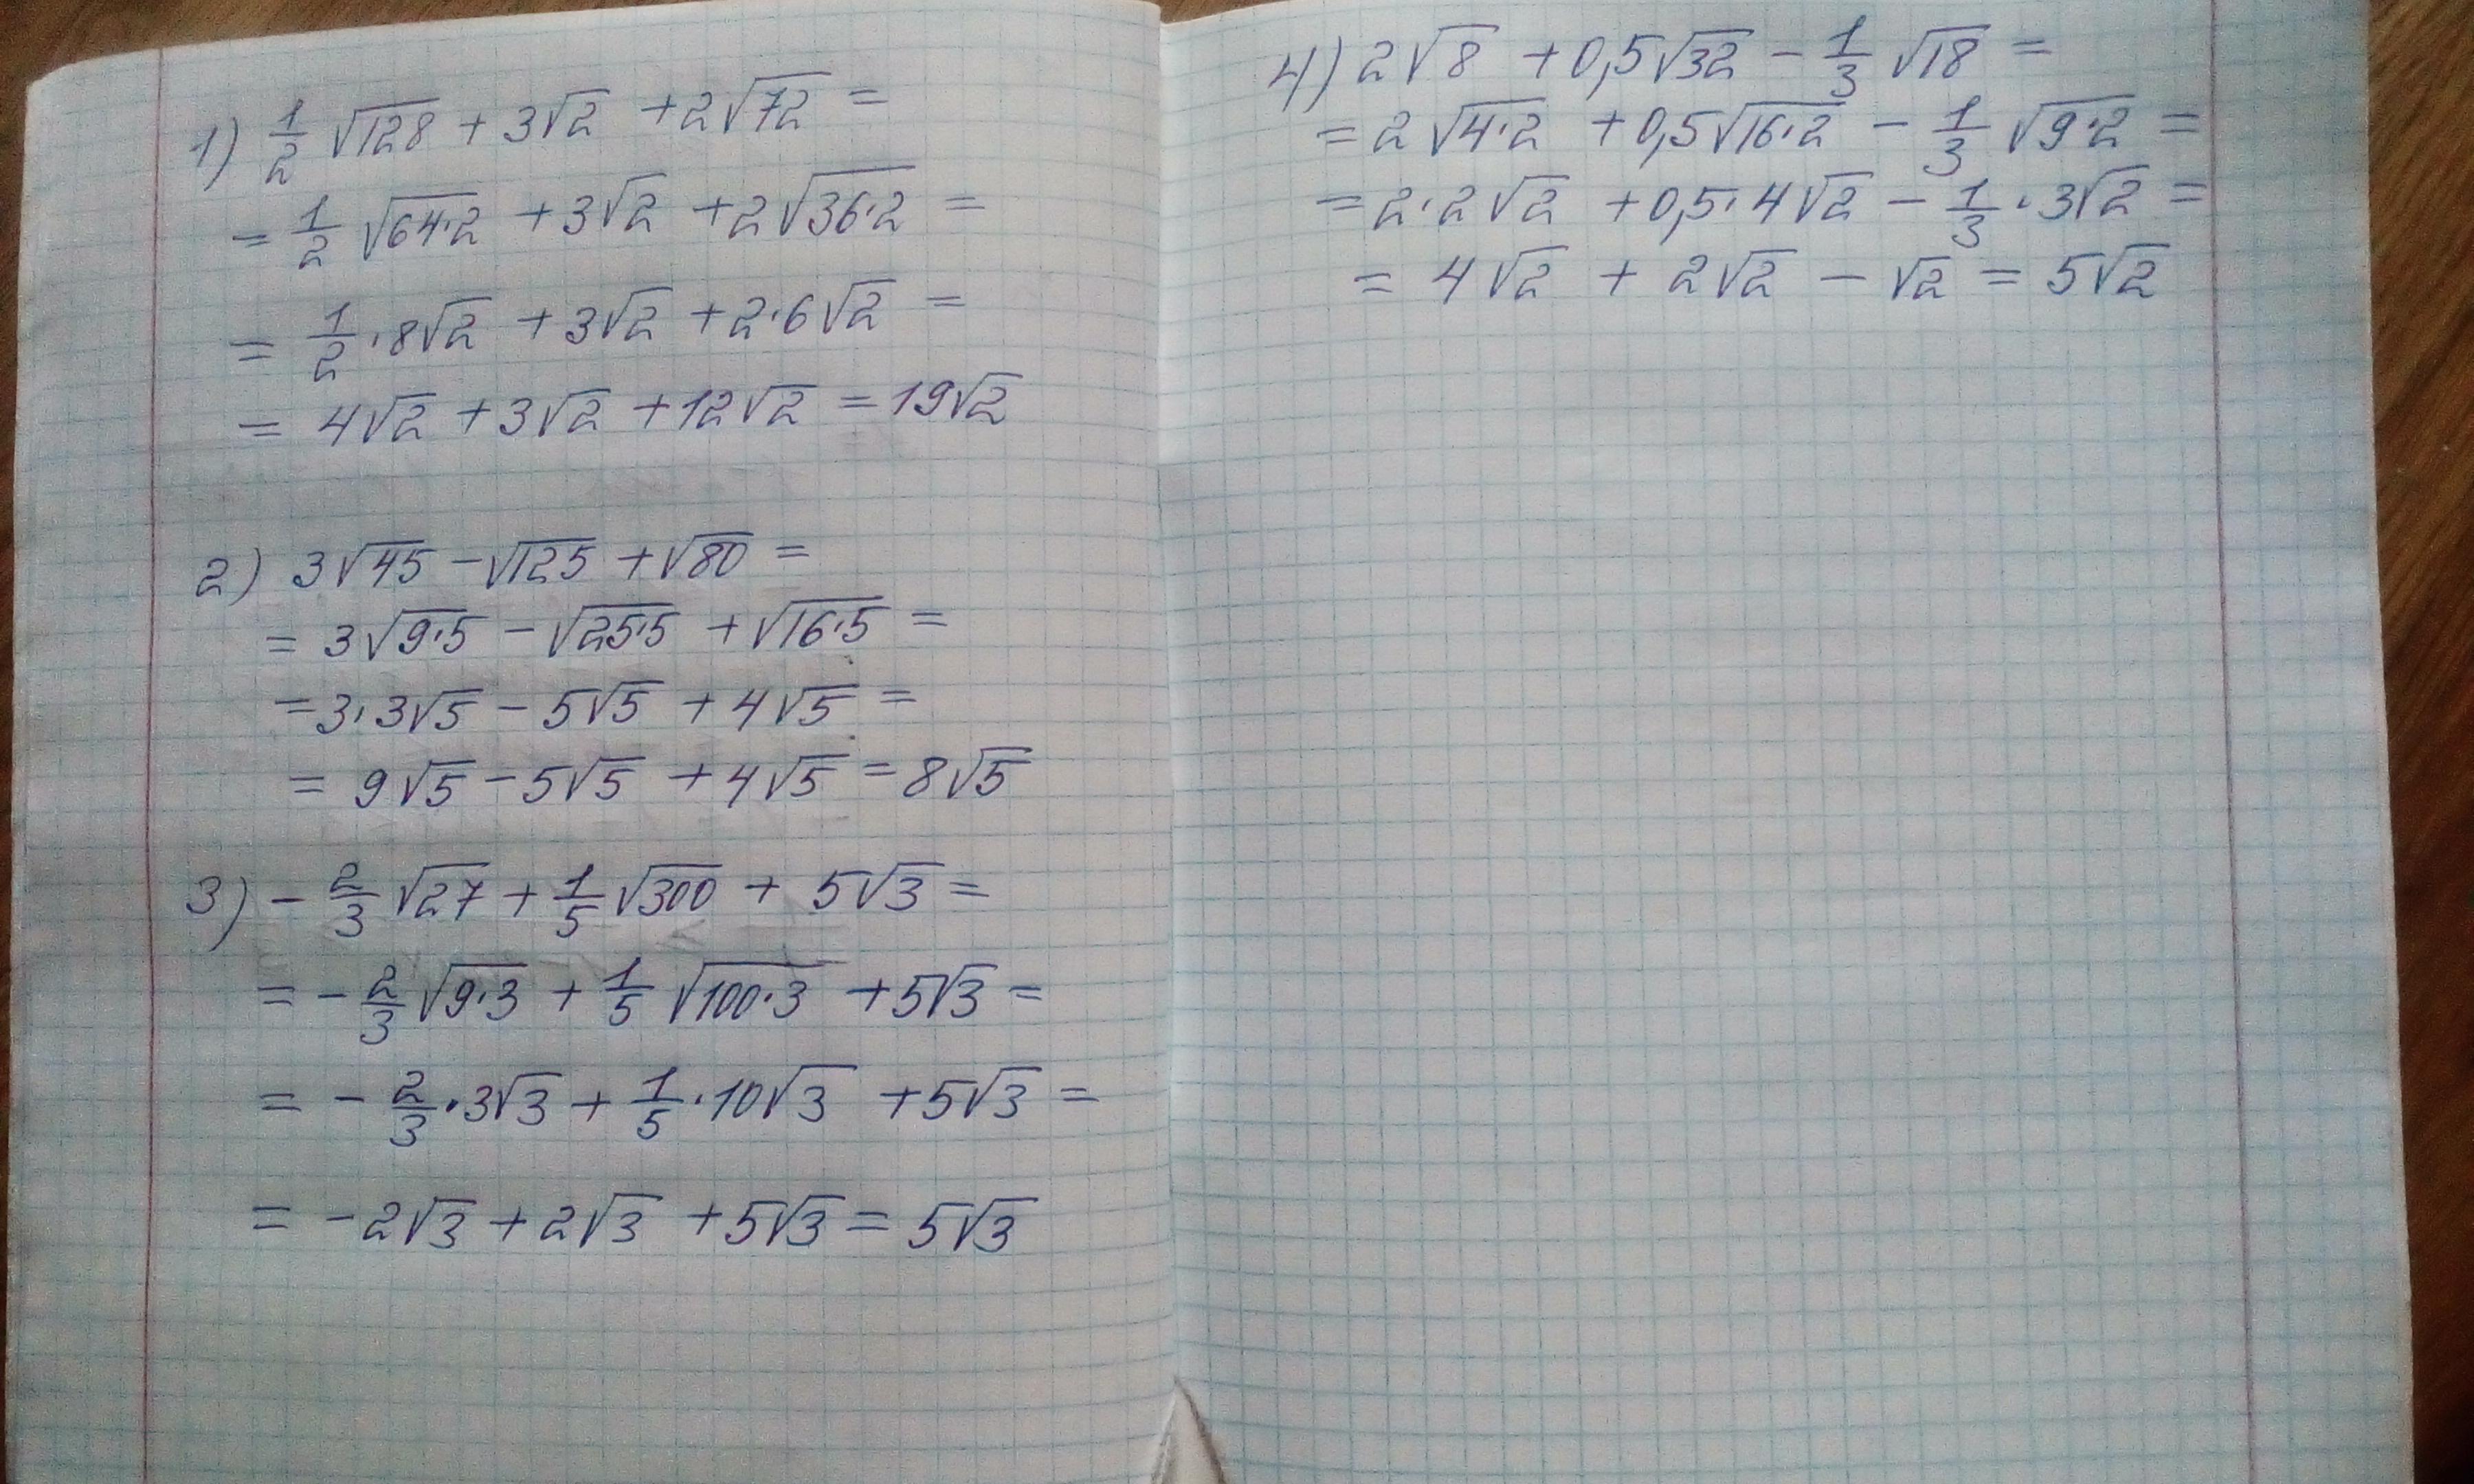 1) 1/2 √128 + 3√2 + 2√72 =
= 1/2 √64·2 + 3√2 + 2√36·2 =
= 1/2 · 8√2 + 3√2 + 2·6√2 =
= 4√2 + 3√2 + 12√2 = 19√2
2) 3√45 - √125 + √80 =
= 3√9·5 - √25·5 + √16·5 =
= 3·3√5 - 5√5 + 4√5 =
= 9√5 - 5√5 + 4√5 = 8√5
3) - 2/3 √27 + 1/5 √300 + 5√3 =
= - 2/3 √9·3 + 1/5 √100·3 + 5√3 =
= - 2/3 · 3√3 + 1/5 · 10√3 + 5√3 =
= - 2√3 + 2√3 + 5√3 = 5√3
4) 2√8 + 0,5√32 - 1/3 √18 =
= 2√4·2 + 0,5√16·2 - 1/3 √9·2 =
= 2·2√2 + 0,5·4√2 - 1/3 · 3√2 =
= 4√2 + 2√2 - √2 = 5√2